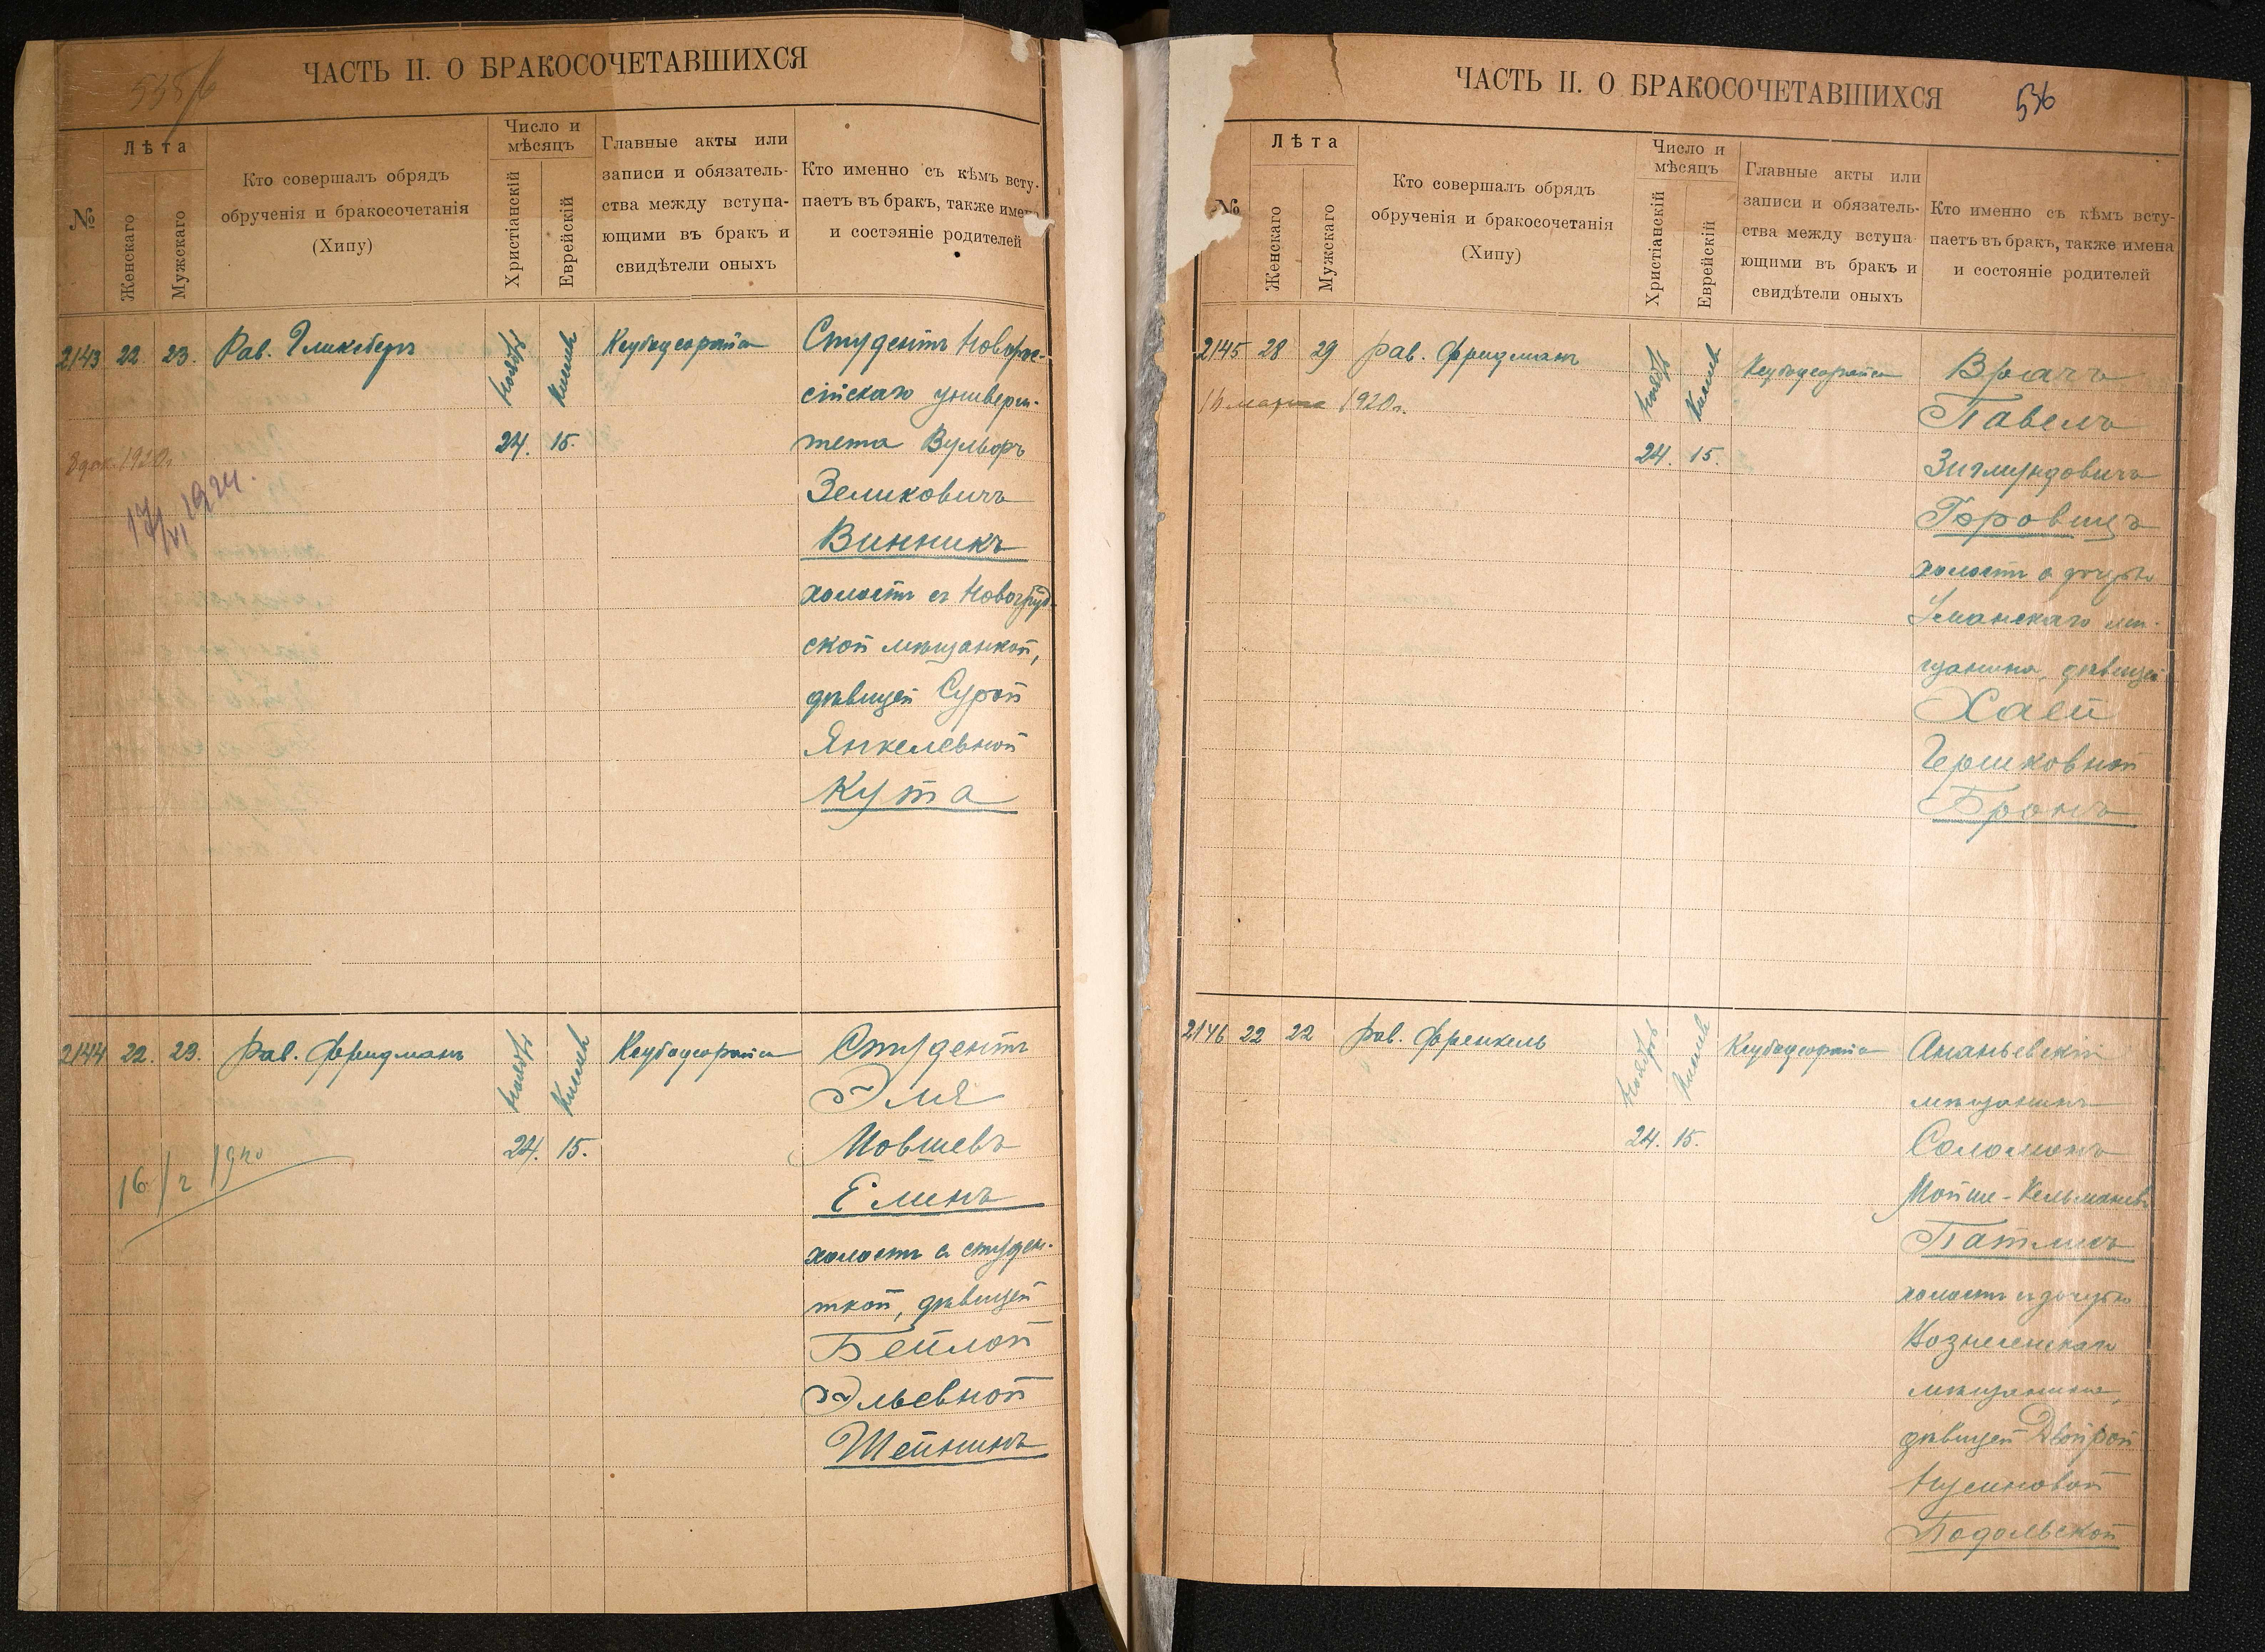 535/6
ЧАСТЬ II. О БРАКОСОЧЕТАВШИХСЯ
№
Лѣта
Женскаго
Мужскаго
Кто совершалъ обрядъ
обрученія и бракосочетанія
(Хипу)
Число и
мѣсяцъ
Христіанскій
Еврейскій
Главные акты или
записи и обязатель-
ства между вступа-
ющими въ бракъ и
свидѣтели оныхъ
Кто именно съ кѣмъ всту-
паетъ въ бракъ, также имена
и состэяніе родителей
2143
22.
23.
Рав. Гликсбергъ
Ноябрь
24.
Кислевъ
15.
Студентъ Новорос-
сійскаго универси-
тета Вульфъ
Зеликовичъ
Винникъ
холостъ съ Новогруд-
ской мѣщанкой,
дѣвицей Сурой
Янкелевной
Кута
1920г.
17/VI 1924.
2144
22.
23.
Рав. Фридманъ
Ноябрь
24.
Кислевъ
15.
Студентъ
Эля
Мовшевъ
Елинъ
холостъ съ студен-
ткой, дѣвицей
Бейлой
Эльевной
Шейнинъ
16/2 1920
ЧАСТЬ II. О БРАКОСОЧЕТАВШИХСЯ
536
№
Лѣта
Женскаго
Мужскаго
Кто совершалъ обрядъ
обрученія и бракосочетанія
(Хипу)
Число и
мѣсяцъ
Христіанскій
Еврейскій
Главные акты или
записи и обязатель-
ства между вступа-
ющими въ бракъ и
свидѣтели оныхъ
Кто именно съ кѣмъ всту-
паетъ въ бракъ, также имена
и состояніе родителей
2145
28
29
Рав. Фридманъ
16 марта 1920г.
Ноябрь
24.
Кислевъ
15.
Врачъ
Павелъ
Зигмундовичъ
Горовицъ
холостъ с дочерью
Уманскаго мѣ-
щанина, дѣвицей
Хаей
Гершковной
Бронъ
2146
22
22
Рав. Френкель
Ноябрь
24.
Кислевъ
15.
Ананьевскій
мѣщанинъ
Соломонъ
Мойше-Кельмановъ
Патлисъ
холостъ съ дочерью
Вознесенскаго
мѣщанина,
дѣвицей Двойрой
Нусиновой
Подольской